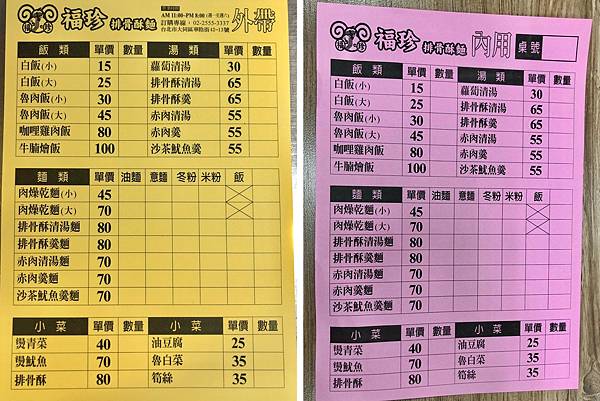 福珍 排骨酥麵 外帶
AM 11:00-PM 8:00
訂購專線：02-2555-3337
台北市大同區華陰街42-13號
飯類 單價 數量 湯類 單價 數量
白飯(小) 15 蘿蔔清湯 30
白飯(大) 25 排骨酥清湯 65
魯肉飯(小) 30 排骨酥羹 65
魯肉飯(大) 45 赤肉清湯 55
咖哩雞肉飯 80 赤肉羹 55
牛腩燴飯 100 沙茶魷魚羹 55
麵類 單價 油麵 意麵 冬粉 米粉 飯
肉燥乾麵(小) 45
肉燥乾麵(大) 70
排骨酥清湯麵 80
排骨酥羹麵 80
赤肉清湯麵 70
赤肉羹麵 70
沙茶魷魚羹麵 70
小菜 單價 數量 小菜 單價 數量
燙青菜 40 油豆腐 25
燙魷魚 70 魯白菜 35
排骨酥 80 筍絲 35
福珍 排骨酥麵 內用 桌號
飯類 單價 數量 湯類 單價 數量
白飯(小) 15 蘿蔔清湯 30
白飯(大) 25 排骨酥清湯 65
魯肉飯(小) 30 排骨酥羹 65
魯肉飯(大) 45 赤肉清湯 55
咖哩雞肉飯 80 赤肉羹 55
牛腩燴飯 100 沙茶魷魚羹 55
麵類 單價 油麵 意麵 冬粉 米粉 飯
肉燥乾麵(小) 45
肉燥乾麵(大) 70
排骨酥清湯麵 80
排骨酥羹麵 80
赤肉清湯麵 70
赤肉羹麵 70
沙茶魷魚羹麵 70
小菜 單價 數量 小菜 單價 數量
燙青菜 40 油豆腐 25
燙魷魚 70 魯白菜 35
排骨酥 80 筍絲 35